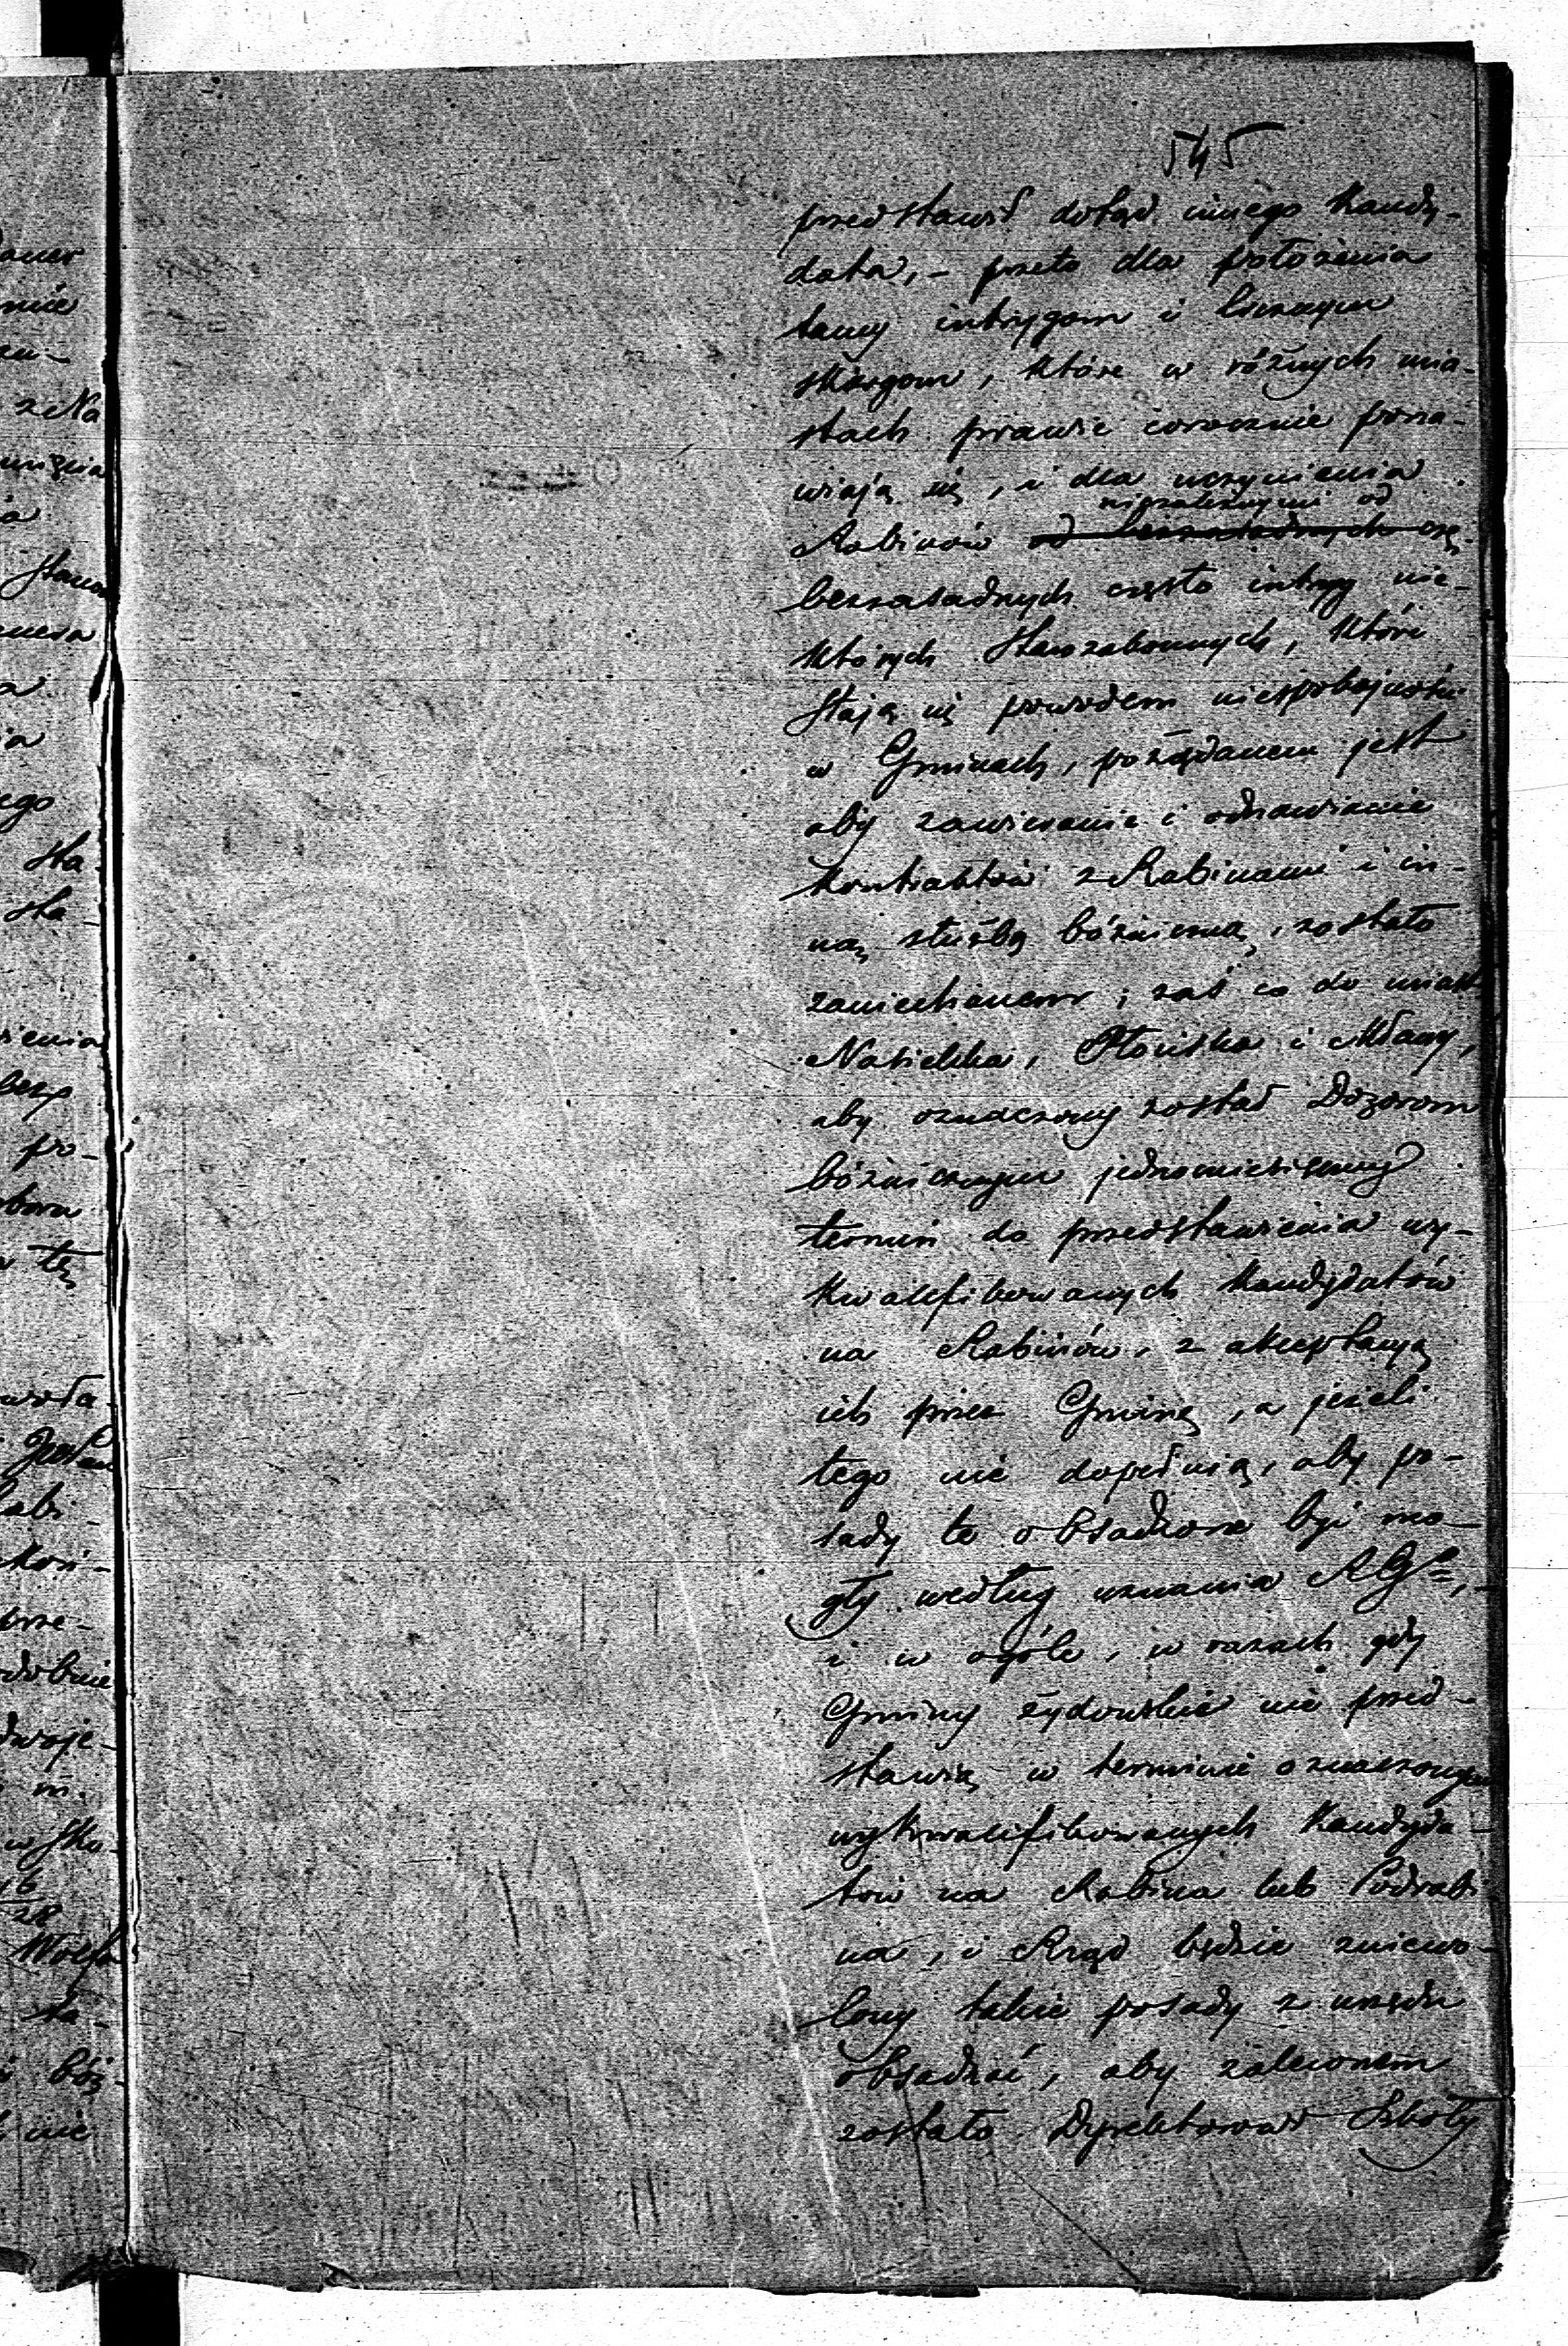 545
przedstawił dotąd innego Kandy-
data, – przeto dla położenia
tamy intrygom i licznym
skargom, które w różnych mia-
stach prawie corocznie pona-
wiają się, i dla uczynienia
niezależnymi od
Rabinów od bezzasadnych czę-
bezzasadnych często intryg nie-
których starozakonnych, które
stają się powodem niespokojności
w Gminach, pożądanem jest
aby zawieranie i odnawianie
Kontraktów z Rabinami i in-
ną służbą bóżniczną, zostało
zaniechanem; zaś co do miast
Nasielska, Płońska i Mławy,
aby oznaczony został Dozorom
bóżnicznym jednomiesięczny
termin do przedstawienia wy-
kwalifikowanych Kandydatów
na Rabinów, z akceptacyą
ich przez Gminę, a jeżeli
tego nie dopełnią, aby po-
sady te obsadzone być mo-
gły według uznania RG=,–
i w ogóle, w razach gdy
Gminy żydowskie nie przed-
stawią w terminie oznaczonym
wykwalifikowanych Kandyda-
tów na Rabina lub Podrabi
na, i Rząd będzie zniewo-
lony takie posady z urzędu
obsadzać, aby zaleconem
zostało Dyrektorowi Szkoły